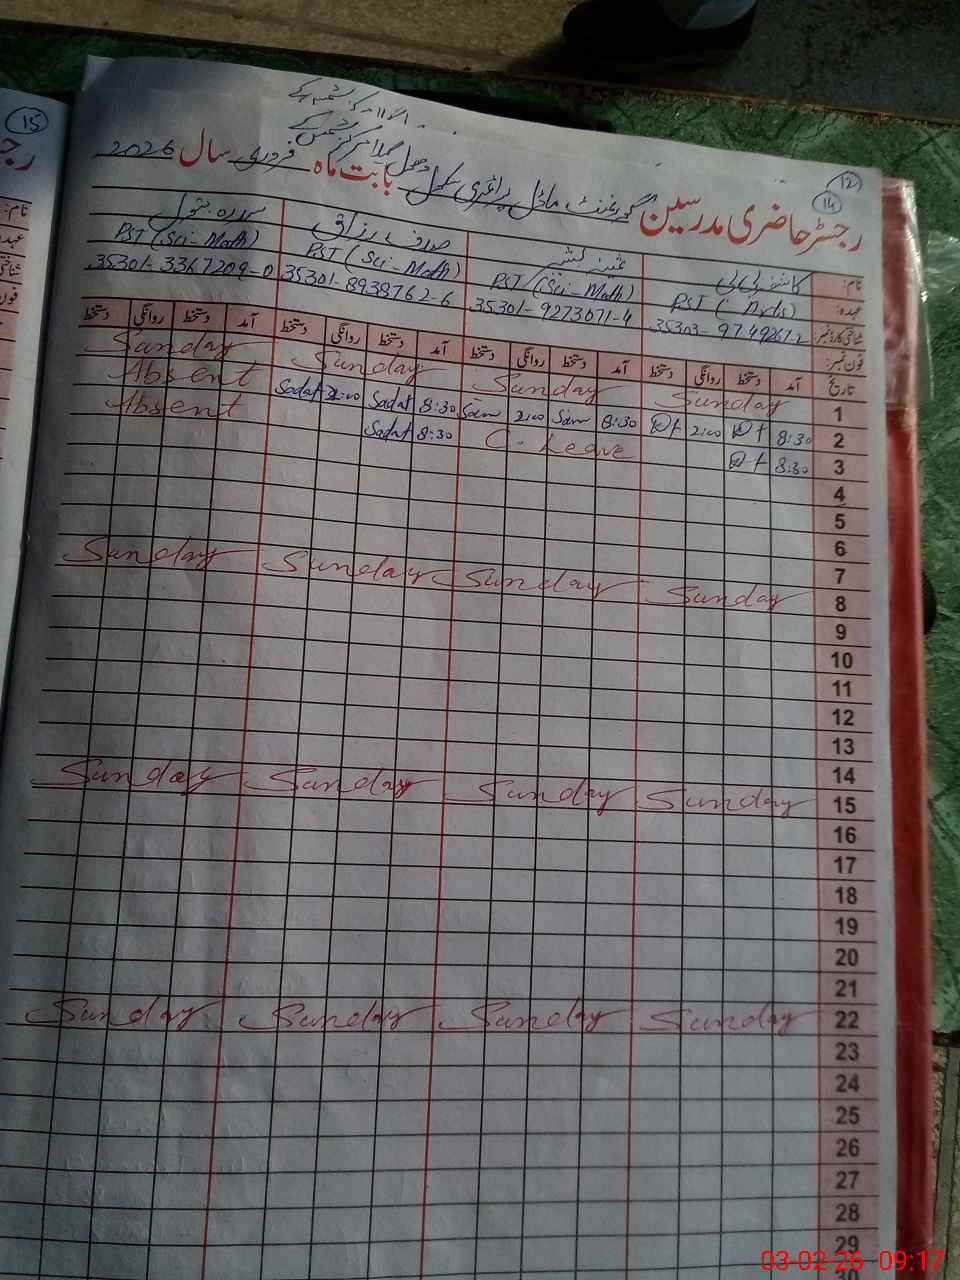 15
12
14
رجسٹر حاضری مدرسین گورنمنٹ ماڈل پرائمری سکول بابت ماہ فروری سال 2026
نام:
صدف رزاق
سدرہ بتول
عہدہ:
PST (Arts)
PST (Sci-Math)
PST (Sci-Math)
PST (Sci-Math)
شناختی کارڈ نمبر:
35303-9749267-2
35301-9273071-4
35301-8938762-6
35301-3367209-0
فون نمبر:
تاریخ آمد دستخط روانگی دستخط آمد دستخط روانگی دستخط آمد دستخط روانگی دستخط آمد دستخط روانگی دستخط
1 Sunday Sunday Sunday Sunday
2 8:30 2:00 8:30 Sam 2:00 Sam 8:30 Sadaf 2:00 Sadaf Absent
3 8:30 C. Leave 8:30 Sadaf Absent
4
5
6
7
8 Sunday Sunday Sunday Sunday
9
10
11
12
13
14
15 Sunday Sunday Sunday Sunday
16
17
18
19
20
21
22 Sunday Sunday Sunday Sunday
23
24
25
26
27
28
29
03-02-26 09:17